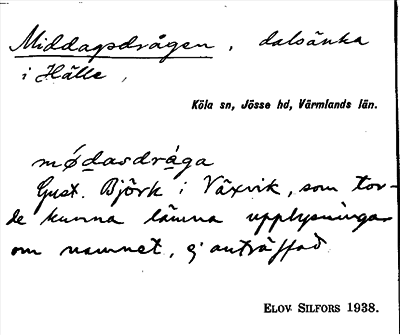 Middagsdrågen, dalsänka
i Hälle,
Köla sn, Jösse hd, Värmlands län.
mǿdasdrága
Gust. Björk i Växvik, som tor-
de kunna lämna upplysningar
om namnet, ej anträffad.
ELOV SILFORS 1938.